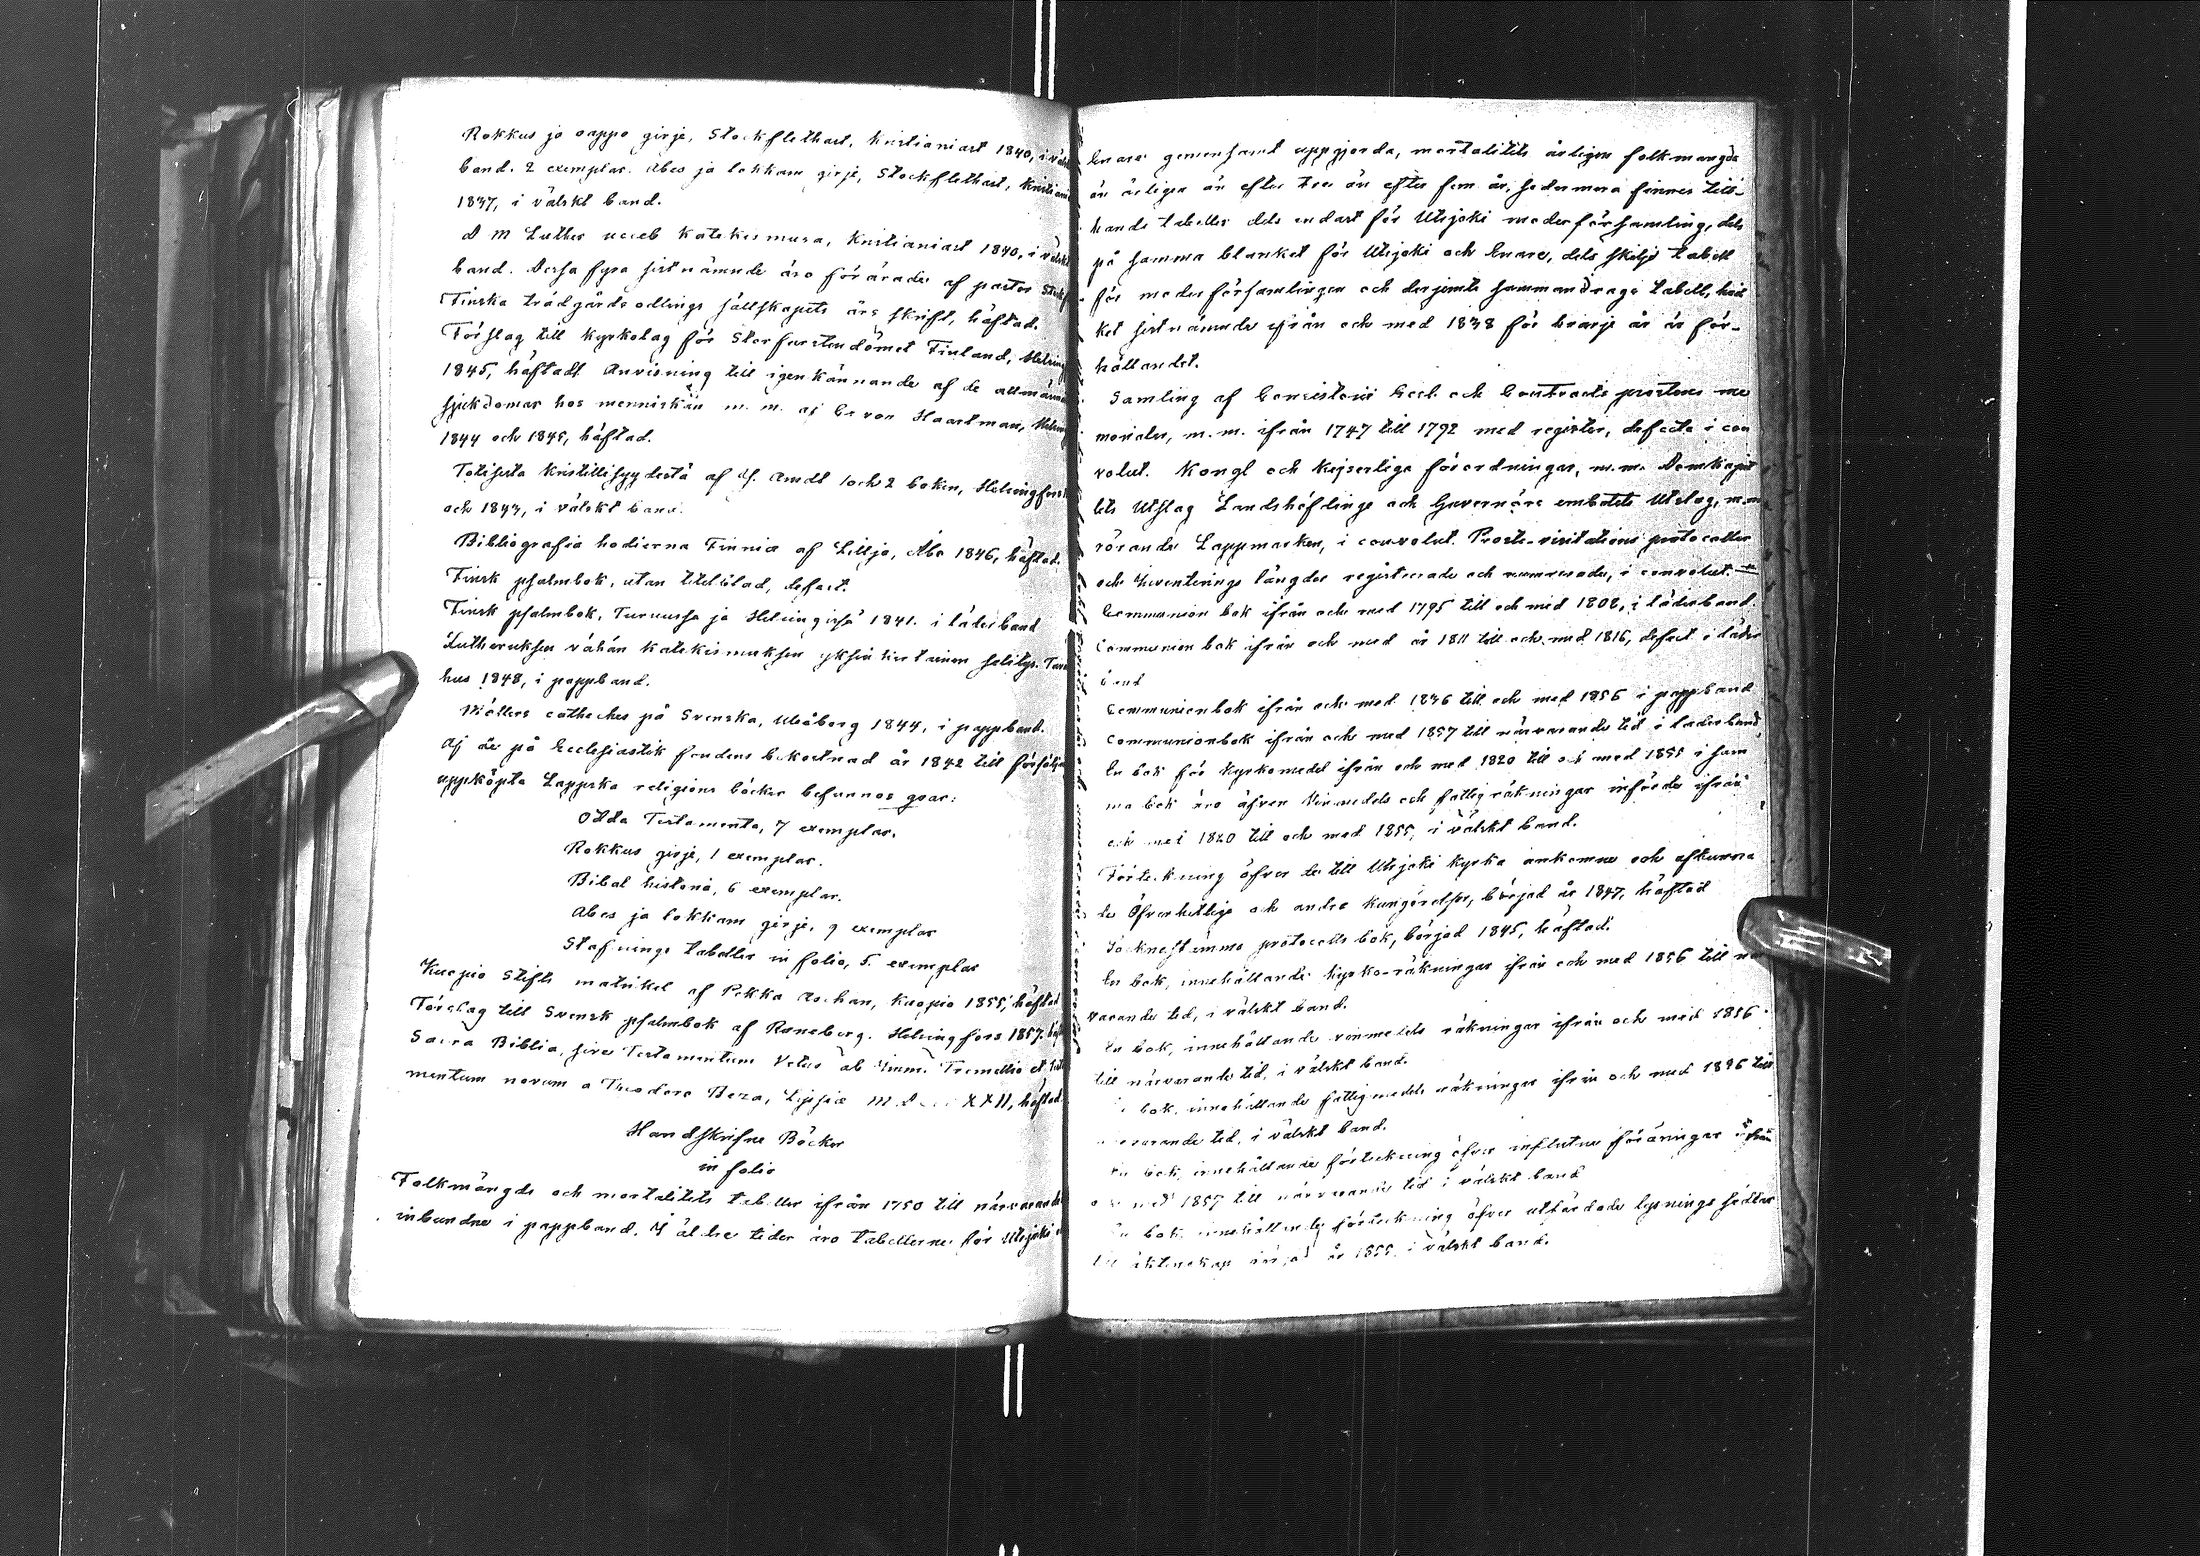 Rokkus ja oappo girje, Stockflethast, Kristianiast 1840, i välskt
band. 2 exemplar. Abes ja lokkam girje, Stockflethast, Kristian
1837, i välskt band.
D M Luther ucceb Katekismusa, Kristianiast 1840, i välskt
band. Dessa fyra sistnämnde äro förärade af pastor Stockf
Finska trädgårds odlings sällskapets års skrift, häftad.
Förslag till Kyrkolag för Storfurstendömet Finland, Helsing
1845, häftadt Anvisning till igenkännande af de allmänna
sjukdomar hos menniskan m. m. af C. von Haartman, Helsing
1844 och 1845, häftad.
Totisesta Kristillisyydestä af J. Arndt 1 och 2 boken, Helsingfors
och 1843, i välskt band.
Bibliografia hodierna Finniæ af Lillja, Åbo 1846, häftad.
Finsk psalmbok, utan titelblad, defect.
Finsk psalmbok, Turussa ja Helsingissä 1841. i läderband
Lutheruksen vähän Katekismuksen yksinkertainen selitys. Tur
hus 1848, i pappband.
Möllers catheches på Svenska, Uleåborg 1844, i pappband.
Af de på Ecclesiastik fondens bekostnad år 1842 till försälj
uppköpta Lappska religions böcker befunnos qvar:
Odda Testamenta, 7 exemplar.
Rokkus girje, 1 exemplar.
Bibal historia, 6 exemplar.
Abes ja lokkam girje, 9 exemplar
Stafnings tabeller in folio, 5 exemplar
Kuopio Stifts matrikel af Pekka Aschan, Kuopio 1855, häftad
Förslag till Svensk psalmbok af Runeberg. Helsingfors 1857.
Sacra Biblia, sive Testamentum Vetus ab Imm. Tremellio et
mentum novum a Theodoro Beza, Lipsiæ M D XXII, häftad
Handskrifne Böcker
in folio
Folkmängds och mortalitets tabeller ifrån 1750 till närvarande
inbundne i pappband. I äldre tider äro tabellerne för Utsjoki
Enare gemensamt uppgjorda, mortalitets årligen folkmängds
än årligen än efter tre än efter fem år, sedermera finnes till-
hands tabeller dels endast för Utsjoki moderförsamling, dels
på samma blankett för Utsjoki och Enare, dels skilje tabell
för moderförsamlingen och derjemte sammandrags tabell, hvil
ket sistnämnde ifrån och med 1838 för hvarje år är för-
hållandet.
Samling af Consistorii Eccl. och Contracts prostens me
morialer, m. m. ifrån 1747 till 1792 med register, defecta i con
volut. Kongl och Kejserliga förordningar, m. m. Domkapit
lets Utslag Landshöflings och Guvernörs embetets Utslag, m.m.
rörande Lappmarken, i convolut. Prosts-visitations protocoller
och Inventerings längder registrerade och numrerade, i convolut.
Communion bok ifrån och med 1795 till och med 1802, i läderband.
Communion bok ifrån och med år 1811 till och med 1816, defect i läder
band
Communionbok ifrån och med 1836 till och med 1856 i pappband
Communionbok ifrån och med 1857 till närvarande tid i läderband
En bok för Kyrkomedel ifrån och med 1820 till och med 1855 i sam
ma bok äro äfven Vinmedels och fattigräkningar införde ifrån
och med 1820 till och med 1855, i välskt band.
Förteckning öfver de till Utsjoki Kyrka ankomne och afkunna
de Öfverhetliga och andra Kungörelser, börjad år 1847, häftad
Socknestämmo protocolls bok, börjad 1845, häftad.
En bok, innehållande kyrko-räkningar ifrån och med 1856 till när
varande tid, i välskt band.
En bok, innehållande vinmedels räkningar ifrån och med 1856
till närvarande tid, i välskt band.
bok, innehållande fattigmedels räkningar ifrån och med 1856 till
varande tid, i välskt band.
En bok, innehållande förteckning öfver influtne föräringar ifrån
med 1857 till närvarande tid i välskt band
En bok, innehållande förteckning öfver utfärdade lysnings sedlar
till äktenskap börjad år 1855, i välskt band.